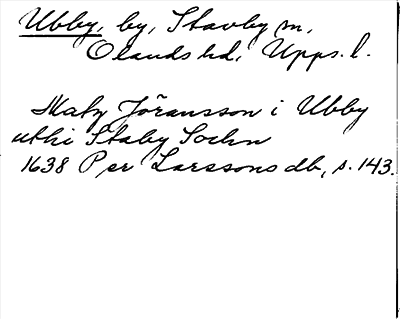 Ubby, by, Stavby sn,
Olands hd, Upps. l.
Matz Jöransson i Ubby
uthi Staby Sochn
1638 Per Larssons db, s. 143.